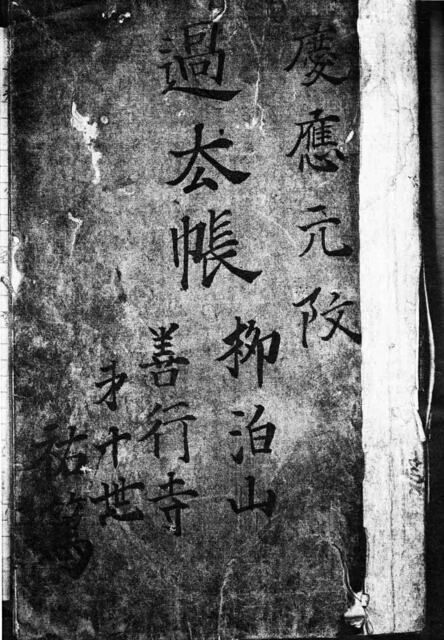 慶應元
過去帳
柳泊山
善行寺
第十世
祐篤